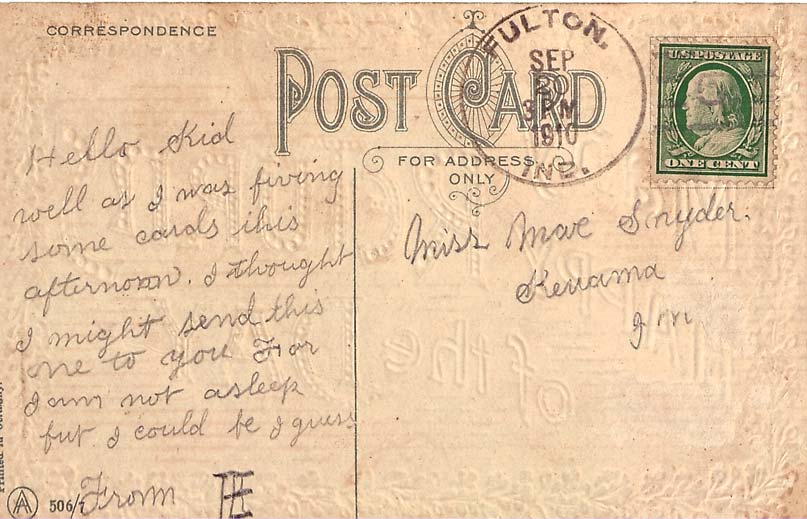 CORRESPONDENCE
POST CARD
FOR ADDRESS
ONLY
FULTON,
SEP
20
3 PM
1910
IND.
U.S. POSTAGE
ONE CENT
Hello Kid
well as I was fixing
some cards this
afternoon. I thought
I might send this
one to you For
I am not asleep
but I could be I guess
From HE
Miss Mae Snyder.
Kewanna
Ind
Printed in Germany.
AA
506/7